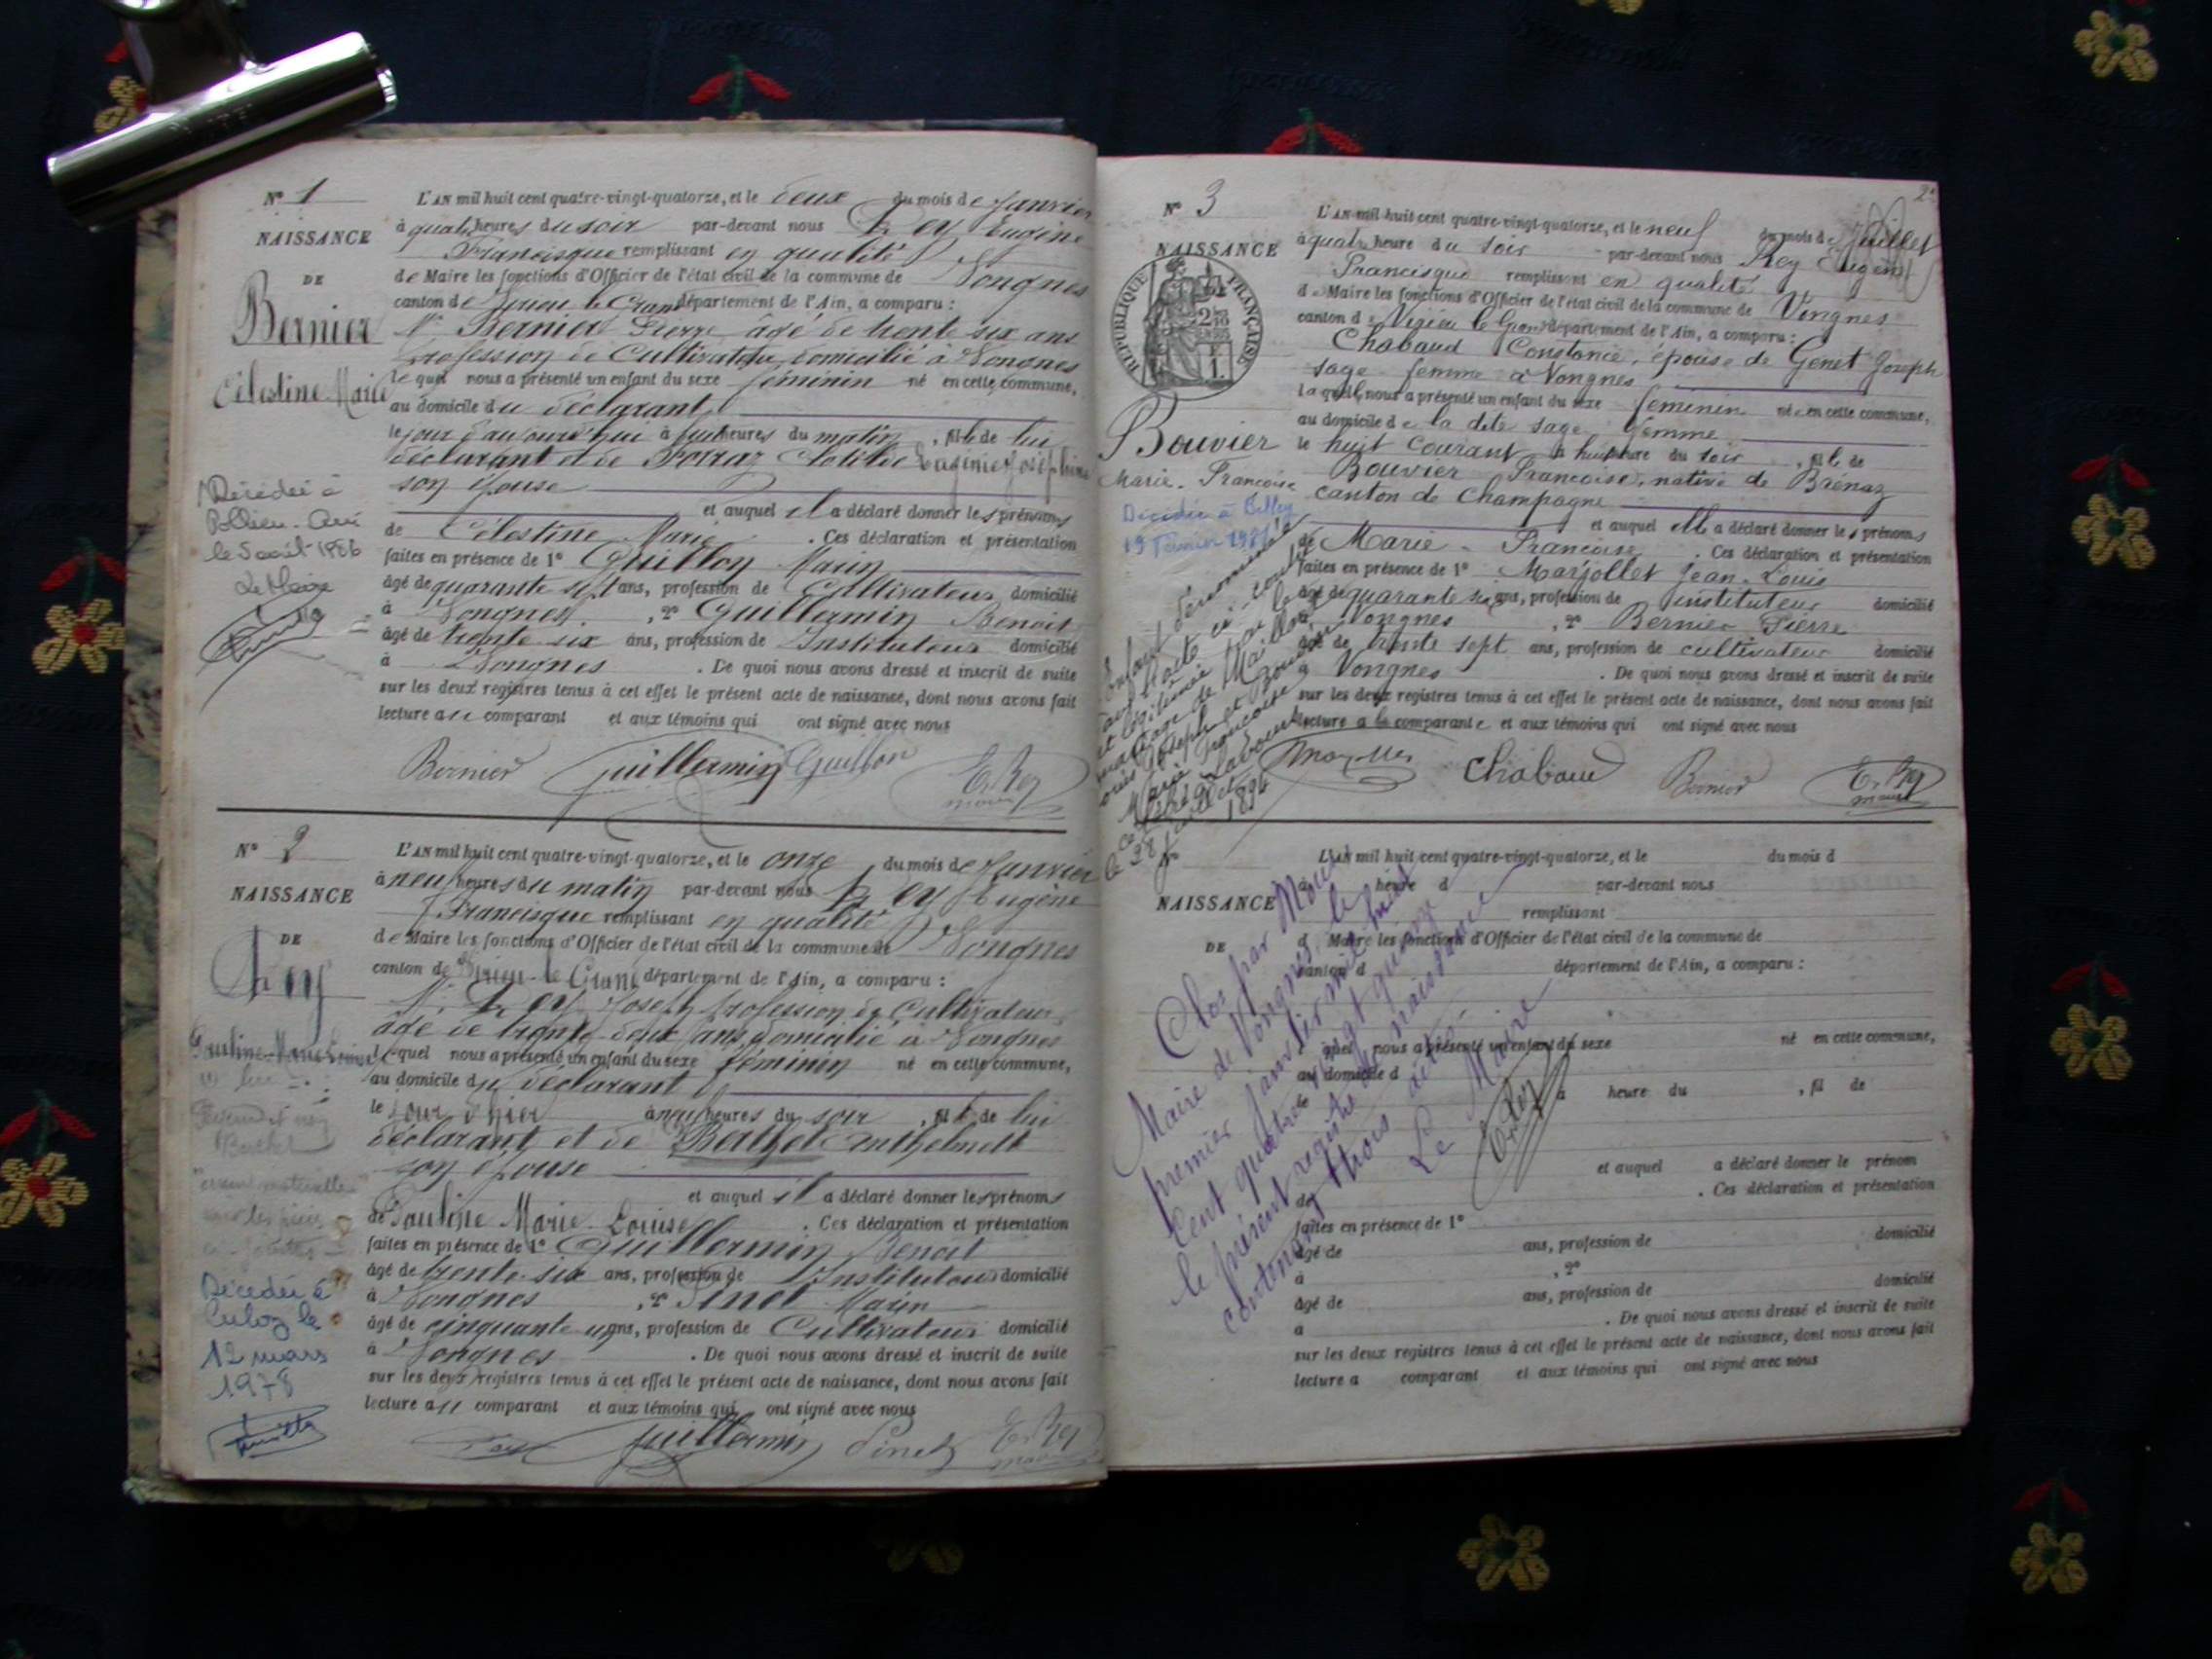 N° 1
NAISSANCE
DE
Bernier
Célestine Marie
Décédée à
Pollieu - Ain
le 5 août 1986
Le Maire
L'AN mil huit cent quatre-vingt-quatorze, et le deux du mois de Janvier
à quatre heures du soir par-devant nous Rey Eugène
Francisque remplissant en qualité
de Maire les fonctions d'Officier de l'état civil de la commune de Vongnes
canton de Virieu le Grand département de l'Ain, a comparu :
Mr Bernier Pierre âgé de trente six ans
profession de Cultivateur domicilié à Vongnes
lequel nous a présenté un enfant du sexe féminin né en cette commune,
au domicile du déclarant
le jour d'aujourd'hui à heures du matin, fille de lui
déclarant et de Clotilde Eugénie Joséphine
son épouse
et auquel il a déclaré donner les prénoms
de Célestine Marie . Ces déclaration et présentation
faites en présence de 1° Guillon Marin
âgé de quarante sept ans, profession de Cultivateur domicilié
à Vongnes. , 2° Guillermin Benoit
âgé de trente six ans, profession de Instituteur domicilié
à Vongnes . De quoi nous avons dressé et inscrit de suite
sur les deux registres tenus à cet effet le présent acte de naissance, dont nous avons fait
lecture au comparant et aux témoins qui ont signé avec nous
Bernier Guillermin Guillon E. Rey
maire
N° 2
NAISSANCE
DE
Rey
Pauline Marie Louise
Berthet
Décédée à
Culoz le
12 mars
1978
L'AN mil huit cent quatre-vingt-quatorze, et le onze du mois de Janvier
à neuf heures du matin par-devant nous Rey Eugène
Francisque remplissant en qualité
de Maire les fonctions d'Officier de l'état civil de la commune de Vongnes
canton de Virieu-le-Grand département de l'Ain, a comparu :
Mr Rey Joseph profession de Cultivateur
âgé de trente deux ans domicilié à Vongnes
lequel nous a présenté un enfant du sexe féminin né en cette commune,
au domicile du déclarant
le jour d'hier à heures du soir, fille de lui
déclarant et de Berthet Anthelmette
son épouse
et auquel il a déclaré donner les prénoms
de Pauline Marie Louise . Ces déclaration et présentation
faites en présence de 1° Guillermin Benoit
âgé de trente six ans, profession de Instituteur domicilié
à Vongnes , 2° Pinet Marin
âgé de cinquante un ans, profession de Cultivateur domicilié
à Vongnes . De quoi nous avons dressé et inscrit de suite
sur les deux registres tenus à cet effet le présent acte de naissance, dont nous avons fait
lecture au comparant et aux témoins qui ont signé avec nous
Rey Guillermin Pinet E. Rey
maire
2
N° 3
NAISSANCE
RÉPUBLIQUE FRANÇAISE
Bouvier
Marie-Françoise
Décédée à Belley
19 Février 1981
L'AN mil huit cent quatre-vingt-quatorze, et le neuf du mois de Juillet
à quatre heure du soir par-devant nous Rey Eugène
Francisque remplissant en qualité
de Maire les fonctions d'Officier de l'état civil de la commune de Vongnes
canton de Virieu le Grand département de l'Ain, a comparu :
Chabaud Constance, épouse de Genet Joseph
sage femme à Vongnes
laquelle nous a présenté un enfant du sexe féminin née en cette commune,
au domicile de la dite sage femme
le huit courant à huit heure du soir, fille de
Bouvier Françoise, native de Brénaz
canton de Champagne
et auquel elle a déclaré donner les prénoms
de Marie-Françoise . Ces déclaration et présentation
faites en présence de 1° Marjollet Jean-Louis
âgé de quarante six ans, profession de instituteur domicilié
à Vongnes , 2° Bernier Pierre
âgé de trente sept ans, profession de cultivateur domicilié
à Vongnes . De quoi nous avons dressé et inscrit de suite
sur les deux registres tenus à cet effet le présent acte de naissance, dont nous avons fait
lecture à la comparante et aux témoins qui ont signé avec nous
Chabaud Bernier E. Rey
maire
Enfant
et légitimée par le
mariage de
Joseph et Bouvier
Marie Françoise
le 28
1896
N°
NAISSANCE
DE
L'AN mil huit cent quatre-vingt-quatorze, et le du mois d
à heure d par-devant nous
remplissant
d Maire les fonctions d'Officier de l'état civil de la commune de
canton d département de l'Ain, a comparu :
quel nous a présenté un enfant du sexe né en cette commune,
au domicile d
le à heure du , fil de
et auquel a déclaré donner le prénom
de . Ces déclaration et présentation
faites en présence de 1°
âgé de ans, profession de domicilié
à , 2°
âgé de ans, profession de domicilié
à . De quoi nous avons dressé et inscrit de suite
sur les deux registres tenus à cet effet le présent acte de naissance, dont nous avons fait
lecture a comparant et aux témoins qui ont signé avec nous
Clos par Nous
Maire de Vongnes, le
premier janvier mil huit
cent quatre vingt quinze
le présent registre de naissance
contenant trois actes
Le Maire
E. Rey